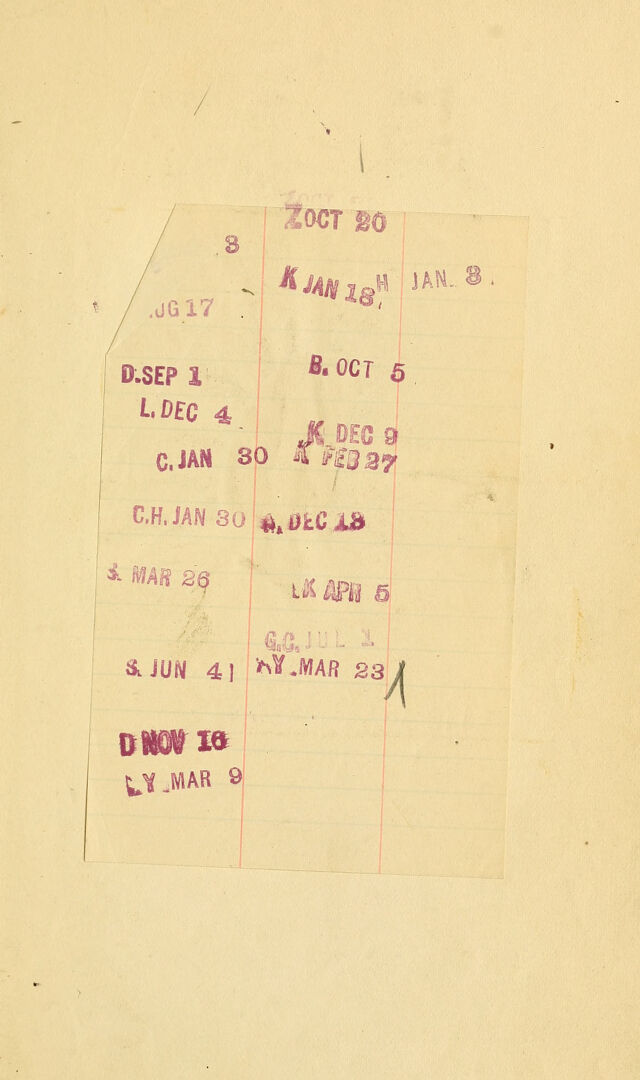 3
UG 17
D. SEP 1
L. DEC 4
C. JAN 30
C.H. JAN 30
S. MAR 26
S. JUN 4
D NOV 16
Y. MAR 9
Z OCT 20
K JAN 18
B. OCT 5
K DEC 9
K FEB 27
A. DEC 13
K APR 5
G.C. JUL 1
Y. MAR 23
H JAN. 3